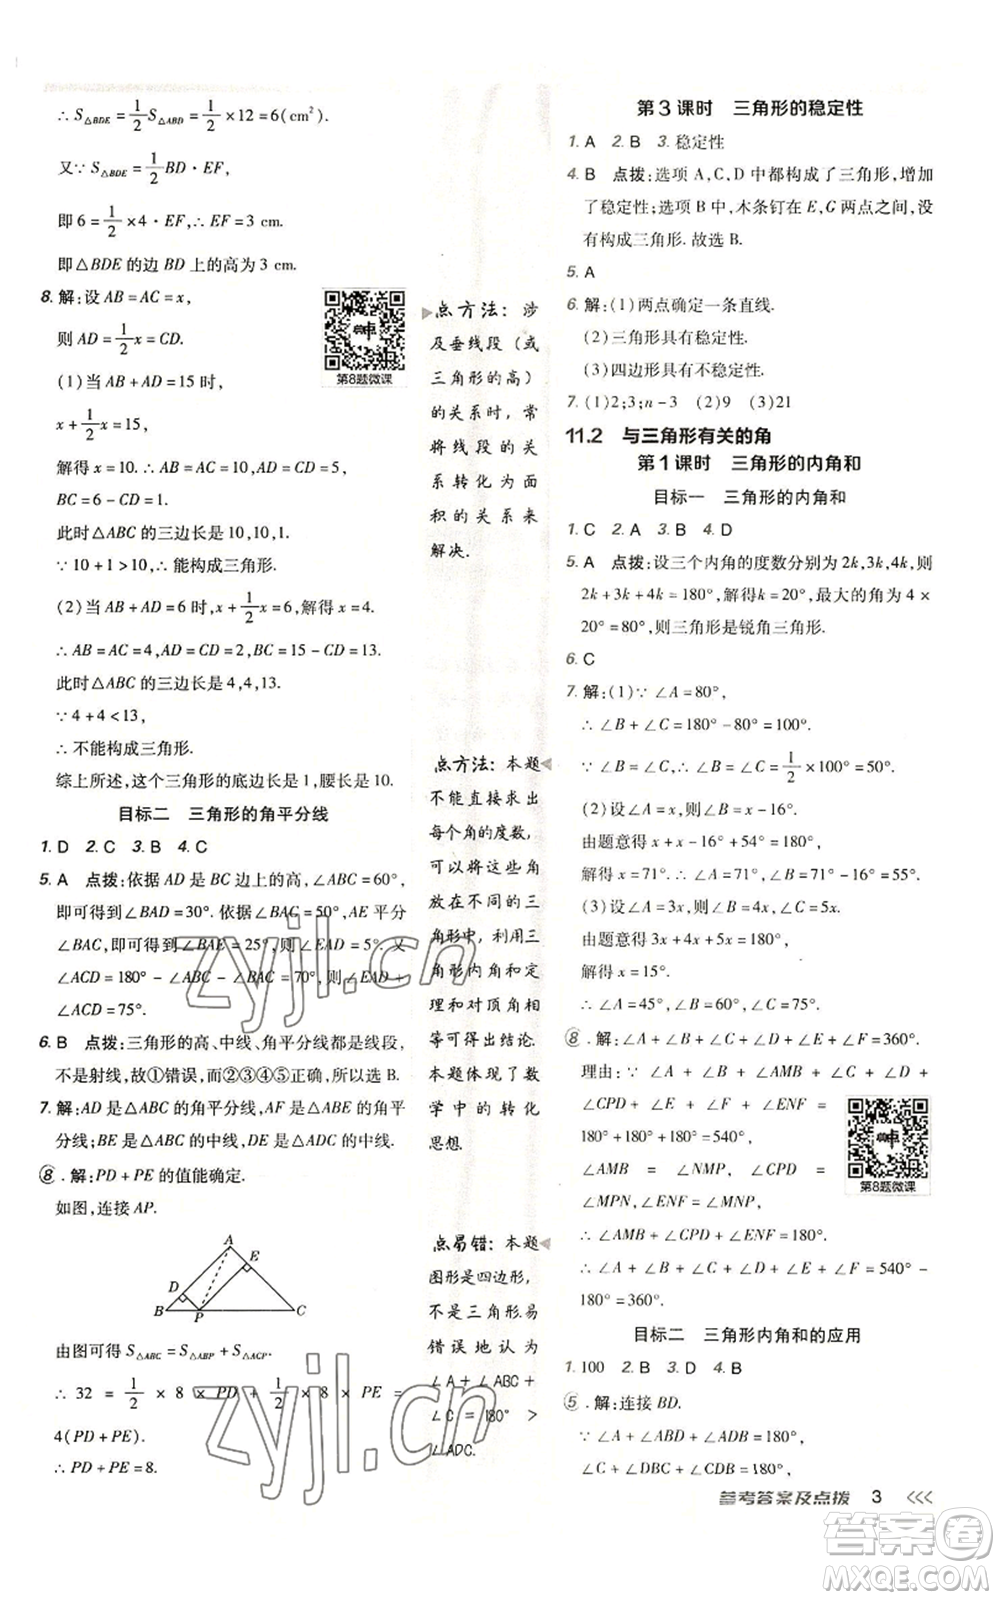 ∴ S△BDE = 1/2 S△ABD = 1/2 × 12 = 6(cm²).
又∵ S△BDE = 1/2 BD · EF,
即 6 = 1/2 × 4 · EF, ∴ EF = 3 cm.
即△BDE 的边 BD 上的高为 3 cm.
8. 解:设 AB = AC = x,
则 AD = 1/2 x = CD.
(1)当 AB + AD = 15 时,
x + 1/2 x = 15.
解得 x = 10. ∴ AB = AC = 10, CD = 5,
BC = 6 − CD = 1.
此时△ABC 的三边长是 10,10,1.
∵ 10 + 1 > 10, ∴ 能构成三角形.
(2)当 AB + AD = 6 时, x + 1/2 x = 6, 解得 x = 4.
∴ AB = AC = 4, CD = 2, BC = 15 − CD = 13.
此时△ABC 的三边长是 4,4,13.
∵ 4 + 4 < 13,
∴ 不能构成三角形.
综上所述,这个三角形的底边长是 1,腰长是 10.
第8题微课
目标二 三角形的角平分线
1. D 2. C 3. B 4. C
5. A 点拨:依据 AD 是 BC 边上的高, ∠ABC = 60°,
即可得到∠BAD = 30°. 依据∠BAC = 50°, AE 平分
∠BAC, 即可得到∠BAE = 25°, 则∠EAD = 5°. 又
∠ACD = 180° − ∠ABC − ∠BAC = 70°, 则∠EAD +
∠ACD = 75°.
6. B 点拨:三角形的高、中线、角平分线都是线段,
不是射线,故①错误,而②③④⑤正确,所以选 B.
7. 解:AD 是△ABC 的角平分线, AF 是△ABE 的角平
分线; BE 是△ABC 的中线, DE 是△ADC 的中线.
⑧. 解:PD + PE 的值能确定.
如图,连接 AP.
A
D
E
B
P
C
由图可得 S△ABC = S△ABP + S△ACP.
∴ 32 = 1/2 × 8 × PD + 1/2 × 8 × PE =
4(PD + PE).
∴ PD + PE = 8.
点方法: 涉
及垂线段(或
三角形的高)
的关系时, 常
将线段的关
系转化为面
积的关系来
解决.
点方法:本题
不能直接求出
每个角的度数,
可以将这些角
放在不同的三
角形中,利用三
角形内角和定
理和对顶角相
等可得出结论.
本题体现了数
学中的转化
思想.
点易错:本题
图形是四边形,
不是三角形.易
错误地认为
∠A + ∠ABC +
∠C = 180° >
∠ADC.
第 3 课时 三角形的稳定性
1. A 2. B 3. 稳定性
4. B 点拨:选项 A,C,D 中都构成了三角形,增加
了稳定性;选项 B 中,木条钉在 E,G 两点之间,没
有构成三角形. 故选 B.
5. A
6. 解:(1)两点确定一条直线.
(2)三角形具有稳定性.
(3)四边形具有不稳定性.
7. (1)2;3;n − 3 (2)9 (3)21
11.2 与三角形有关的角
第 1 课时 三角形的内角和
目标一 三角形的内角和
1. C 2. A 3. B 4. D
5. A 点拨:设三个内角的度数分别为 2k,3k,4k,则
2k + 3k + 4k = 180°, 解得 k = 20°, 最大的角为 4 ×
20° = 80°, 则三角形是锐角三角形.
6. C
7. 解:(1)∵ ∠A = 80°,
∴ ∠B + ∠C = 180° − 80° = 100°.
∵ ∠B = ∠C, ∴ ∠B = 1/2 × 100° = 50°.
(2)设∠A = x, 则∠B = x − 16°.
由题意得 x + x − 16° + 54° = 180°.
解得 x = 71°. ∴ ∠B = 71° − 16° = 55°.
(3)设∠A = 3x, 则∠B = 4x, ∠C = 5x.
由题意得 3x + 4x + 5x = 180°,
解得 x = 15°.
∴ ∠A = 45°, ∠B = 60°, ∠C = 75°.
⑧. 解:∠A + ∠B + ∠C + ∠D + ∠E + ∠F = 360°.
理由: ∵ ∠A + ∠B + ∠AMB + ∠C + ∠D +
∠CPD + ∠E + ∠F + ∠ENF =
180° + 180° + 180° = 540°,
∠AMB = ∠NMP, ∠CPD =
∠MPN, ∠ENF = ∠MNP,
∴ ∠AMB + ∠CPD + ∠ENF = 180°.
∴ ∠A + ∠B + ∠C + ∠D + ∠E + ∠F = 540° −
180° = 360°.
第8题微课
目标二 三角形内角和的应用
1. 100 2. B 3. D 4. B
⑤. 解:连接 BD.
∵ ∠A + ∠ABD + ∠ADB = 180°,
∠C + ∠DBC + ∠BDC = 180°,
参考答案及点拨 3
zyjl.cn
答案卷
MXQE.COM